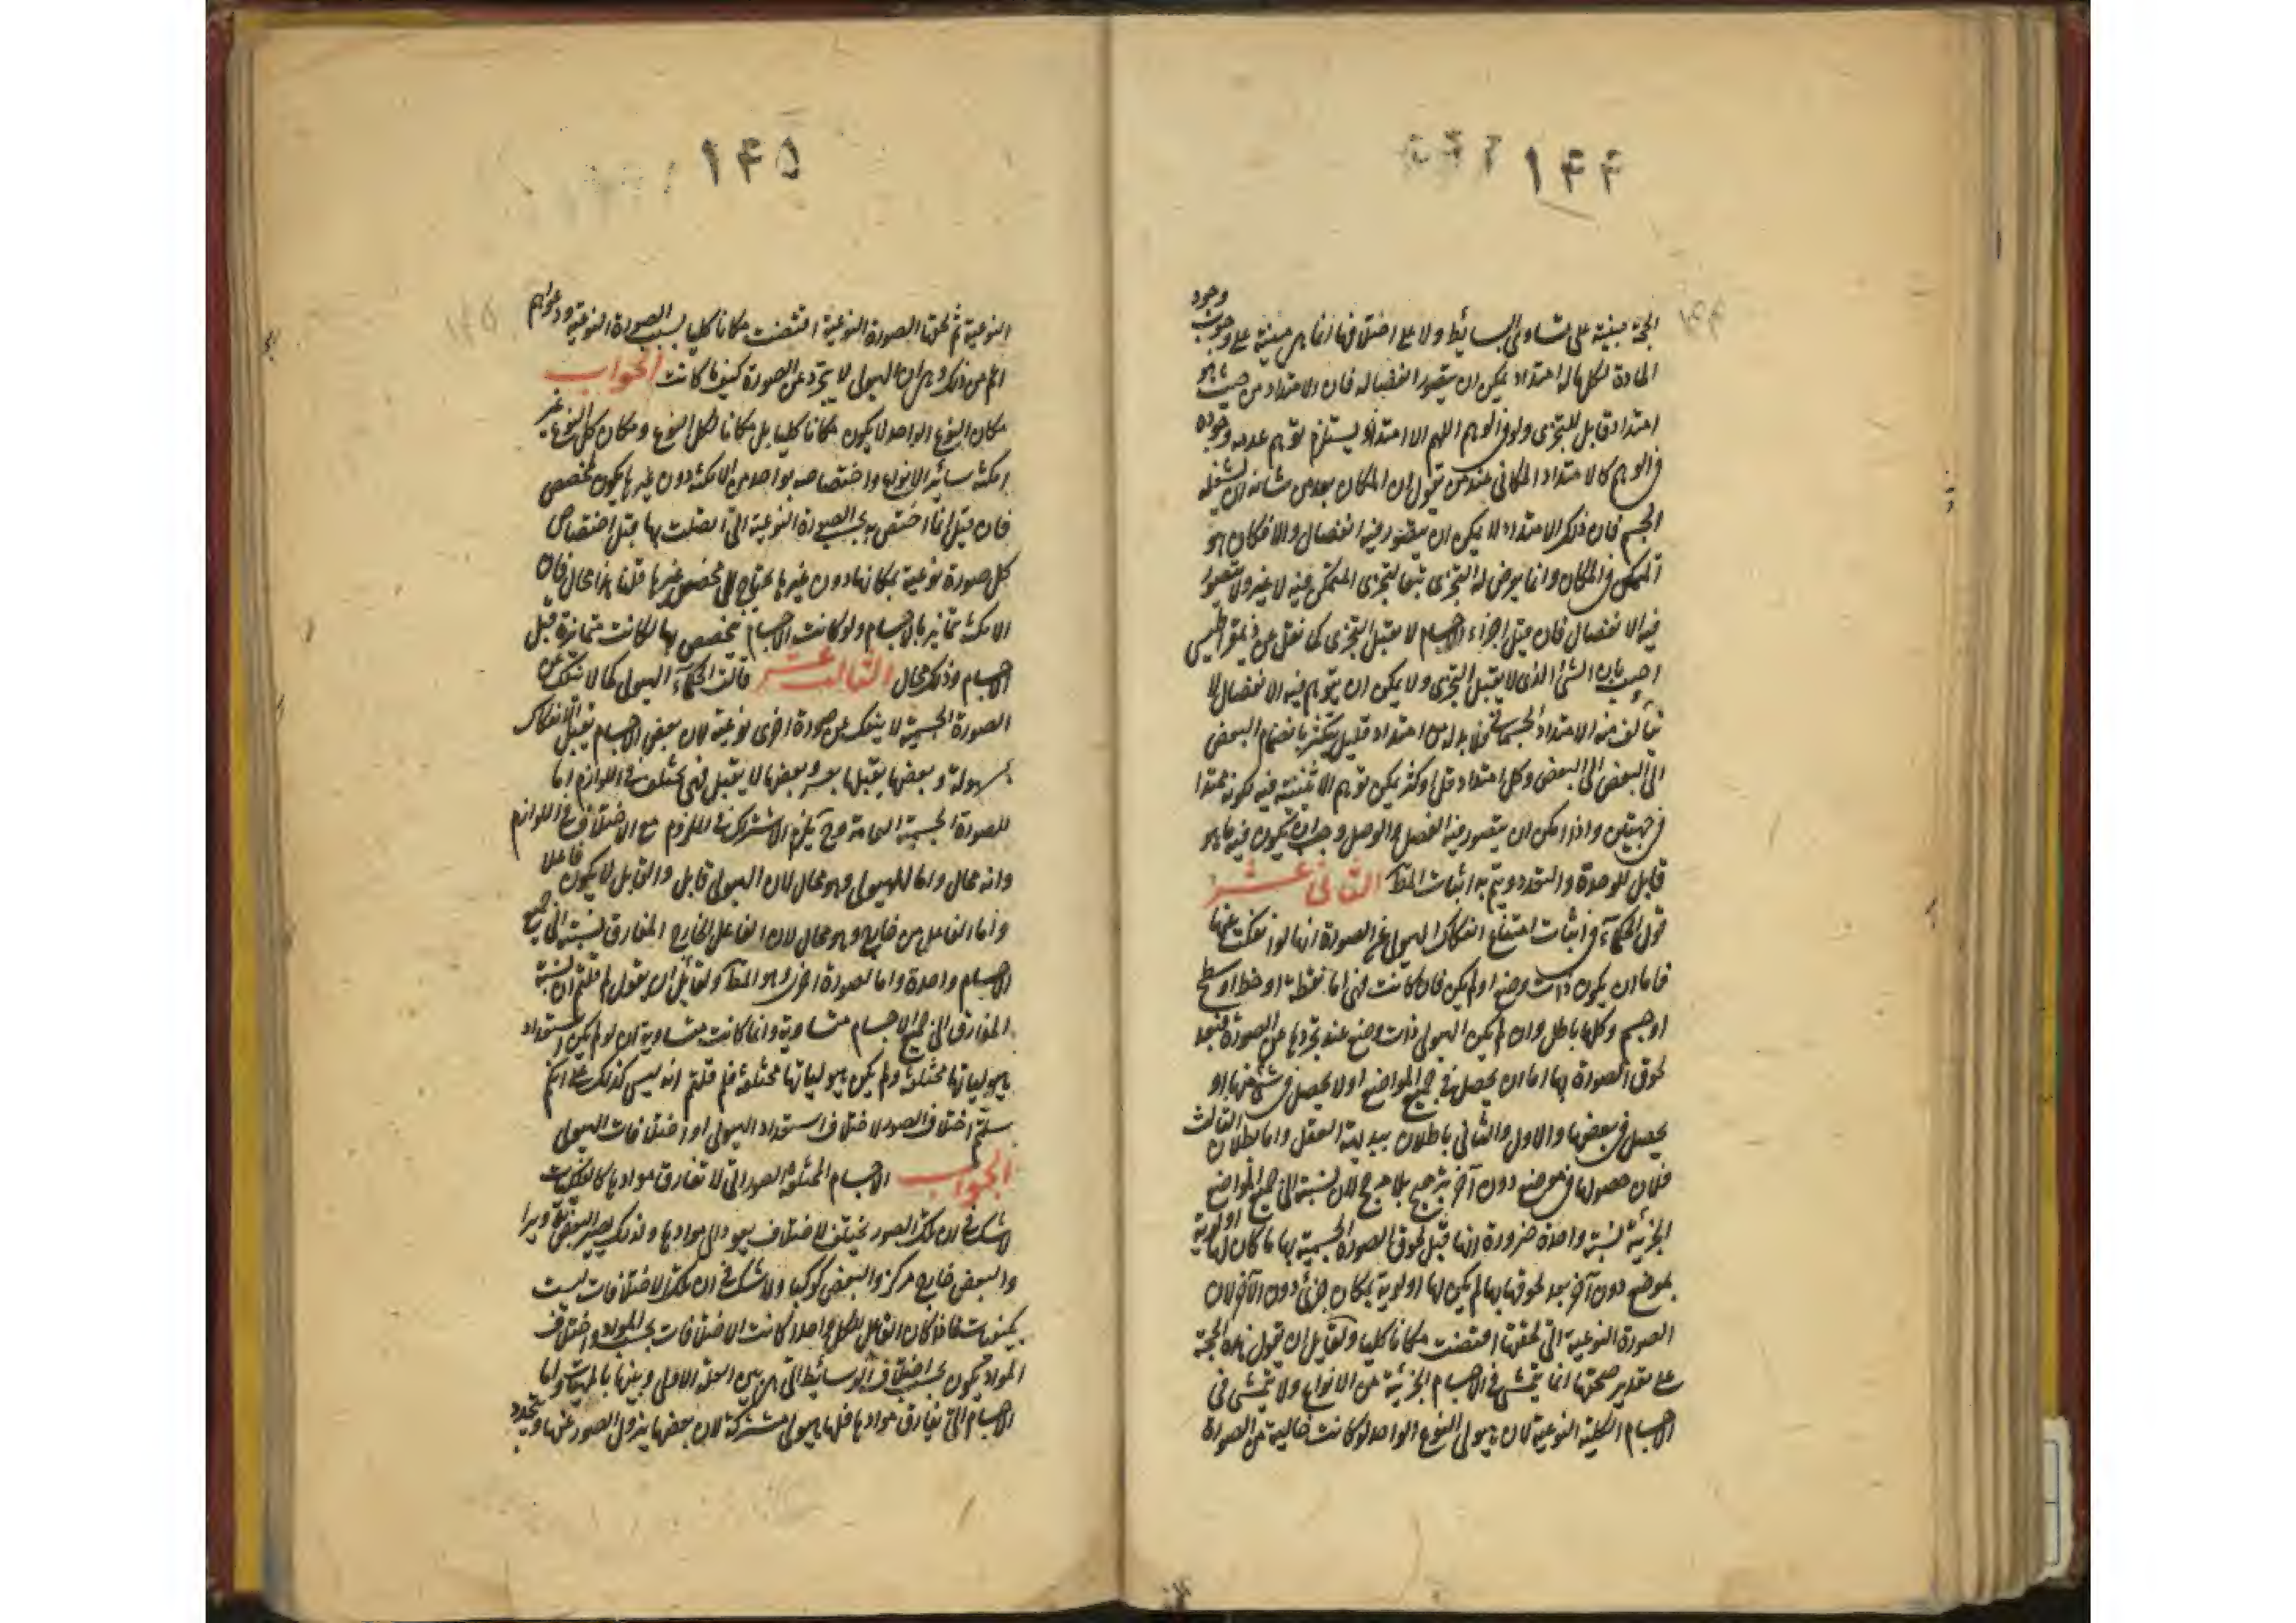 ۱۴۴
الحجة مبنية على تساوى البسائط ولا على اختلافها انما هى مبنية على وجوب وجود
المادة لكل ماله امتداد يمكن ان يتصور انفصاله فان الامتداد من حيث هو
امتداد قابل للتجزى ولو فى الوهم اللهم الا امتداد يستلزم توهم عدمه وجوده
فى الوهم كالامتداد المكانى عند من يقول ان المكان بعد من شانه ان يشغله
الجسم فان ذلك الامتداد لا يمكن ان يتصور فيه انفصال والانفكاك هو
المتمكن فى المكان وانما يعرض له التجزى بتبع التجزى المتمكن فيه لا غير ولا يتصور
فيه الانفصال فان قيل اجزاء الاجسام لا يقبل التجزى كما نقل عن ذيمقراطيس
اجيب بان الشئ الذى لا يقبل التجزى ولا يمكن ان يتوهم فيه الانفصال لا
يتألف منه الامتداد الجسمانى فلا بد له من امتداد قليل يتكثر بانضمام البعض
الى البعض الى البعض وكل امتداد قل او كثر يمكن توهم الاثنينية فيه لكونه ممتدا
فى جهتين واذا امكن ان يتصور فيه الفصل والوصل وجب ان يكون فيه ما هو
قابل للوحدة والتعدد ويتم به اثبات المط الثانى عشر
قول الحكماء فى اثبات امتناع انفكاك الهيولى عن الصورة انها لو انفكت عنها
فاما ان يكون ذات وضع او لم يكن فان كانت فهى اما نقطة او خط او سطح
او جسم وكلها باطل وان لم يكن الهيولى ذات وضع عند تجردها عن الصورة فبعد
لحوق الصورة بها اما ان يحصل فى جميع المواضع او لا يحصل فى شئ منها او
يحصل فى بعضها والاول والثانى باطلان ببديهة العقل واما بطلان الثالث
فلان حصولها فى موضع دون آخر ترجيح بلا مرجح لان نسبتها الى جميع المواضع
الجزئية نسبة واحدة ضرورة انها قبل لحوق الصورة الجسمية بها ما كان لها اولوية
بموضع دون آخر بعد لحوقها بها لم يكن لها اولوية بمكان جزئى دون الآخر لان
الصورة النوعية التى لحقتها اقتضت مكانا كليا ولقايل ان يقول هذه الحجة
على تقدير صحتها انما يتمشى فى الاجسام الجزئية من الانواع ولا يتمشى فى
الاجسام الكلية النوعية لان هيولى النوع الواحد لو كانت خالية عن الصورة
۱۴۵
النوعية ثم لحقها الصورة النوعية اقتضت مكانا كليا بسبب الصورة النوعية ودعواهم
اعم من ذلك وهى ان الهيولى لا يتجرد عن الصورة كيف ما كانت الجواب
مكان النوع الواحد لا يكون مكانا كليا بل مكانا لكل النوع ومكان كل النوع غير
امكنة سائر الانواع واختصاصه بواحد من الامكنة دون غيرها يكون لمخصص
فان قيل انما اختص به بحسب الصورة النوعية التى اتصلت بها قبل اختصاص
كل صورة نوعية بمكانها دون غيرها يحتاج الى مخصص غيرها قلنا هذا محال فان
الامكنة تمايز بالاجسام ولو كانت الاجسام يتخصص بها لكانت متمايزة قبل
الاجسام وذلك محال الثالث عشر قالت الحكماء الهيولى كما لا ينفك عن
الصورة الجسمية لا ينفك عن صورة اخرى نوعية لان بعض الاجسام يقبل الانفكاك
بسهولة وبعضها يقبلها بعسر وبعضها لا يقبل فهى تختلف فى اللوازم اما
للصورة الجسمية العامة وح يلزم الاشتراك فى الملزوم مع الاختلاف فى اللوازم
وانه محال واما للهيولى وهو محال لان الهيولى قابل والقابل لا يكون فاعلا
واما الفاعل من خارج وهو محال لان الفاعل الخارج المفارق نسبته الى جميع
الاجسام واحدة واما لصورة اخرى وهو المط ولقايل ان يقول لم قلتم ان نسبة
المفارق الى جميع الاجسام متساوية وانما كانت متساوية ان لو لم يكن استعداد
هيولياتها مختلفة ولم يكن هيولياتها مختلفة فلم قلتم انه ليس كذلك على انكم
سلمتم اختلاف الصور لاختلاف استعداد الهيولى او اختلافات الهيولى
الجواب الاجسام المختلفة الصور التى لا تفارق موادها كالفلكيات
لا شك فى ان تلك الصور تختلف لاختلاف هيولى موادها ولذلك يصير البعض تدويرا
والبعض خارج مركز والبعض كوكبا ولا شك فى ان تلك الاختلافات ليست
بكيفيات فاذا كان الفاعل للكل واحدا كانت الاختلافات بحسب المواد واختلاف
المواد يكون بحسب اختلاف الوسائط التى هى بين العلة الاولى وبينها بالمهيات واما
الاجسام التى تفارق موادها فلها هيولى مشتركة لان بعضها يزول الصور عنها ويتجدد